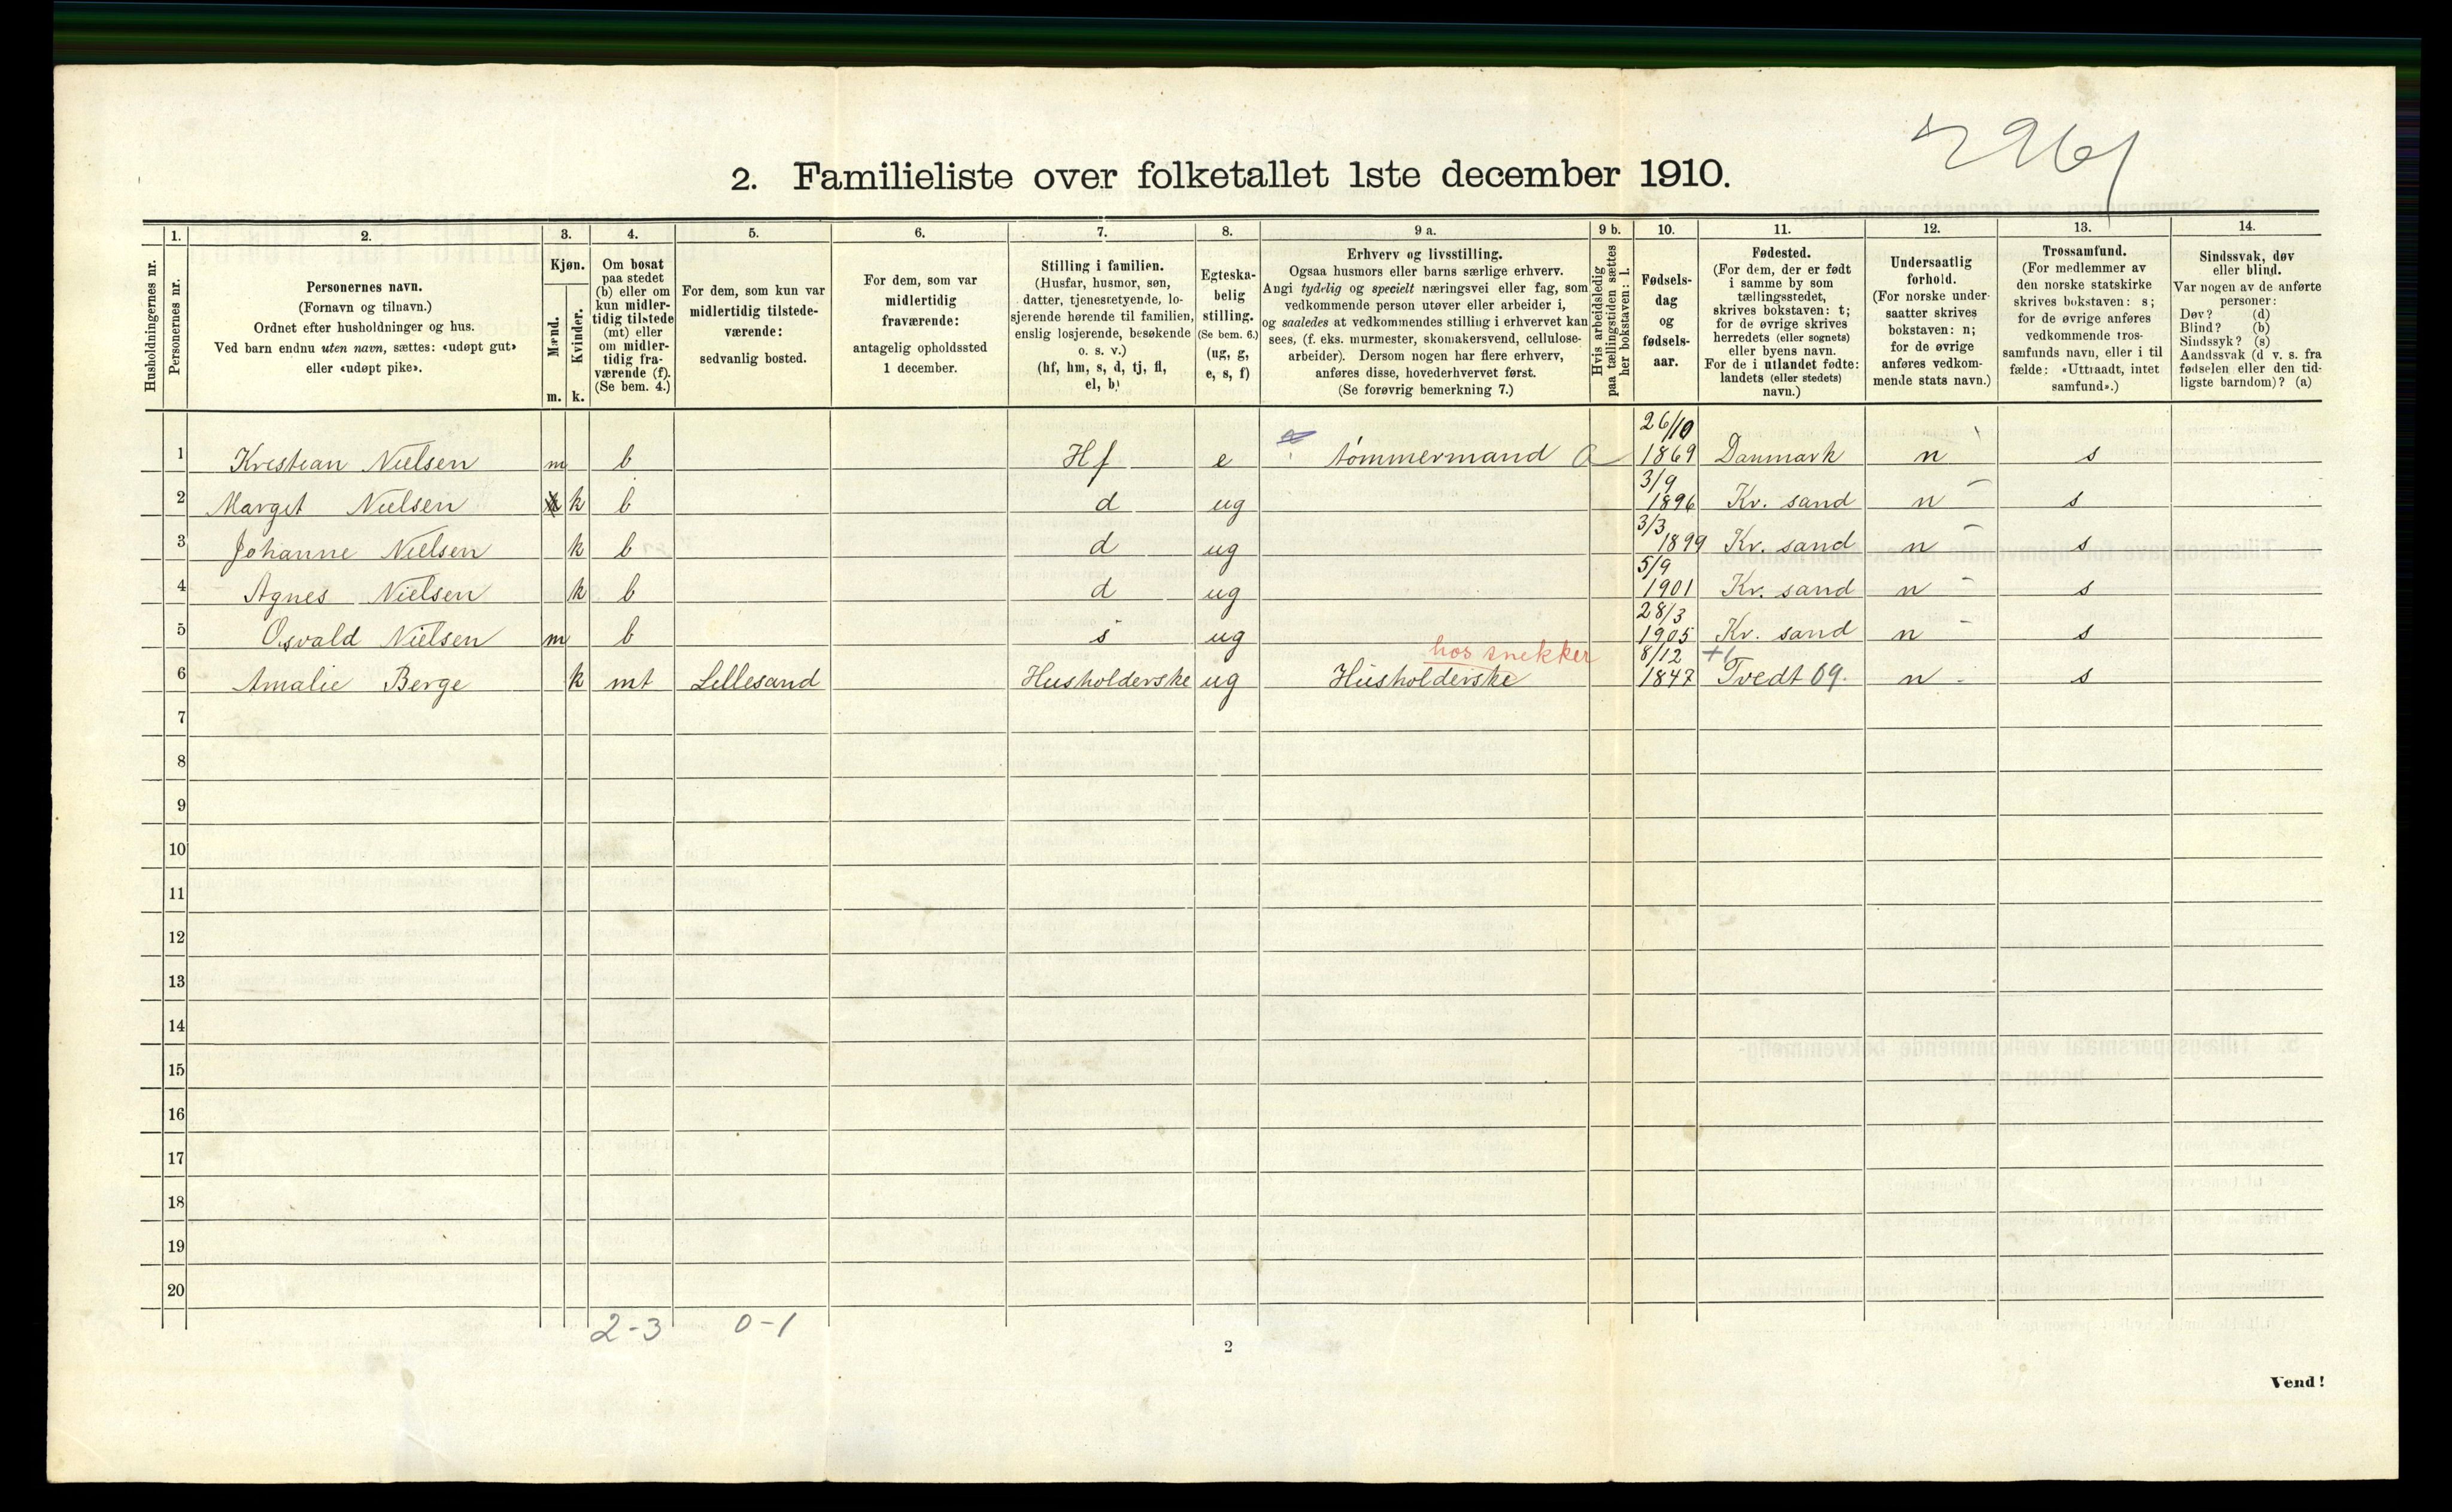 2961
2. Familieliste over folketallet 1ste december 1910.
Husholdningernes nr.
1. Personernes nr.
2. Personernes navn.
(Fornavn og tilnavn.)
Ordnet efter husholdninger og hus.
Ved barn endnu uten navn, sættes: «udøpt gut»
eller «udøpt pike».
3. Kjøn.
Mænd. m.
Kvinder. k.
4. Om bosat
paa stedet
(b) eller om
kun midler-
tidig tilstede
(mt) eller
om midler-
tidig fra-
værende (f).
(Se bem. 4.)
5. For dem, som kun var
midlertidig tilstede-
værende:
sedvanlig bosted.
6. For dem, som var
midlertidig
fraværende:
antagelig opholdssted
1 december.
7. Stilling i familien.
(Husfar, husmor, søn,
datter, tjenestetyende, lo-
sjerende hørende til familien,
enslig losjerende, besøkende
o. s. v.)
(hf, hm, s, d, tj, fl,
el, b)
8. Egteska-
belig
stilling.
(Se bem. 6.)
(ug, g,
e, s, f)
9 a. Erhverv og livsstilling.
Ogsaa husmors eller barns særlige erhverv.
Angi tydelig og specielt næringsvei eller fag, som
vedkommende person utøver eller arbeider i,
og saaledes at vedkommendes stilling i erhvervet kan
sees, (f. eks. murmester, skomakersvend, cellulose-
arbeider). Dersom nogen har flere erhverv,
anføres disse, hovederhvervet først.
(Se forøvrig bemerkning 7.)
9 b. Hvis arbeidsledig
paa tællingstiden sættes
her bokstaven: l.
10. Fødsels-
dag
og
fødsels-
aar.
11. Fødested.
(For dem, der er født
i samme by som
tællingsstedet,
skrives bokstaven: t;
for de øvrige skrives
herredets (eller sognets)
eller byens navn.
For de i utlandet fødte:
landets (eller stedets)
navn.)
12. Undersaatlig
forhold.
(For norske under-
saatter skrives
bokstaven: n;
for de øvrige
anføres vedkom-
mende stats navn.)
13. Trossamfund.
(For medlemmer av
den norske statskirke
skrives bokstaven: s;
for de øvrige anføres
vedkommende tros-
samfunds navn, eller i til
fælde: «Uttraadt, intet
samfund».)
14. Sindssvak, døv
eller blind.
Var nogen av de anførte
personer:
Døv? (d)
Blind? (b)
Sindssyk? (s)
Aandssvak (d v. s. fra
fødselen eller den tid-
ligste barndom)? (a)
1 Kristian Nielsen m b Hf e tømmermand a 26/10 1869 Danmark n s
2 Margit Nielsen k b d ug 3/9 1896 Kr. sand n s
3 Johanne Nielsen k b d ug 3/3 1899 Kr. sand n s
4 Agnes Nielsen k b d ug 5/9 1901 Kr. sand n s
5 Osvald Nielsen m b s ug 28/3 1905 Kr. sand n s
hos snekker
6 Amalie Berge k mt Lillesand Husholderske ug Husholderske 8/12 1847 Tvedt 09. n s
7
8
9
10
11
12
13
14
15
16
17
18
19
20
2-3 0-1
2
Vend!